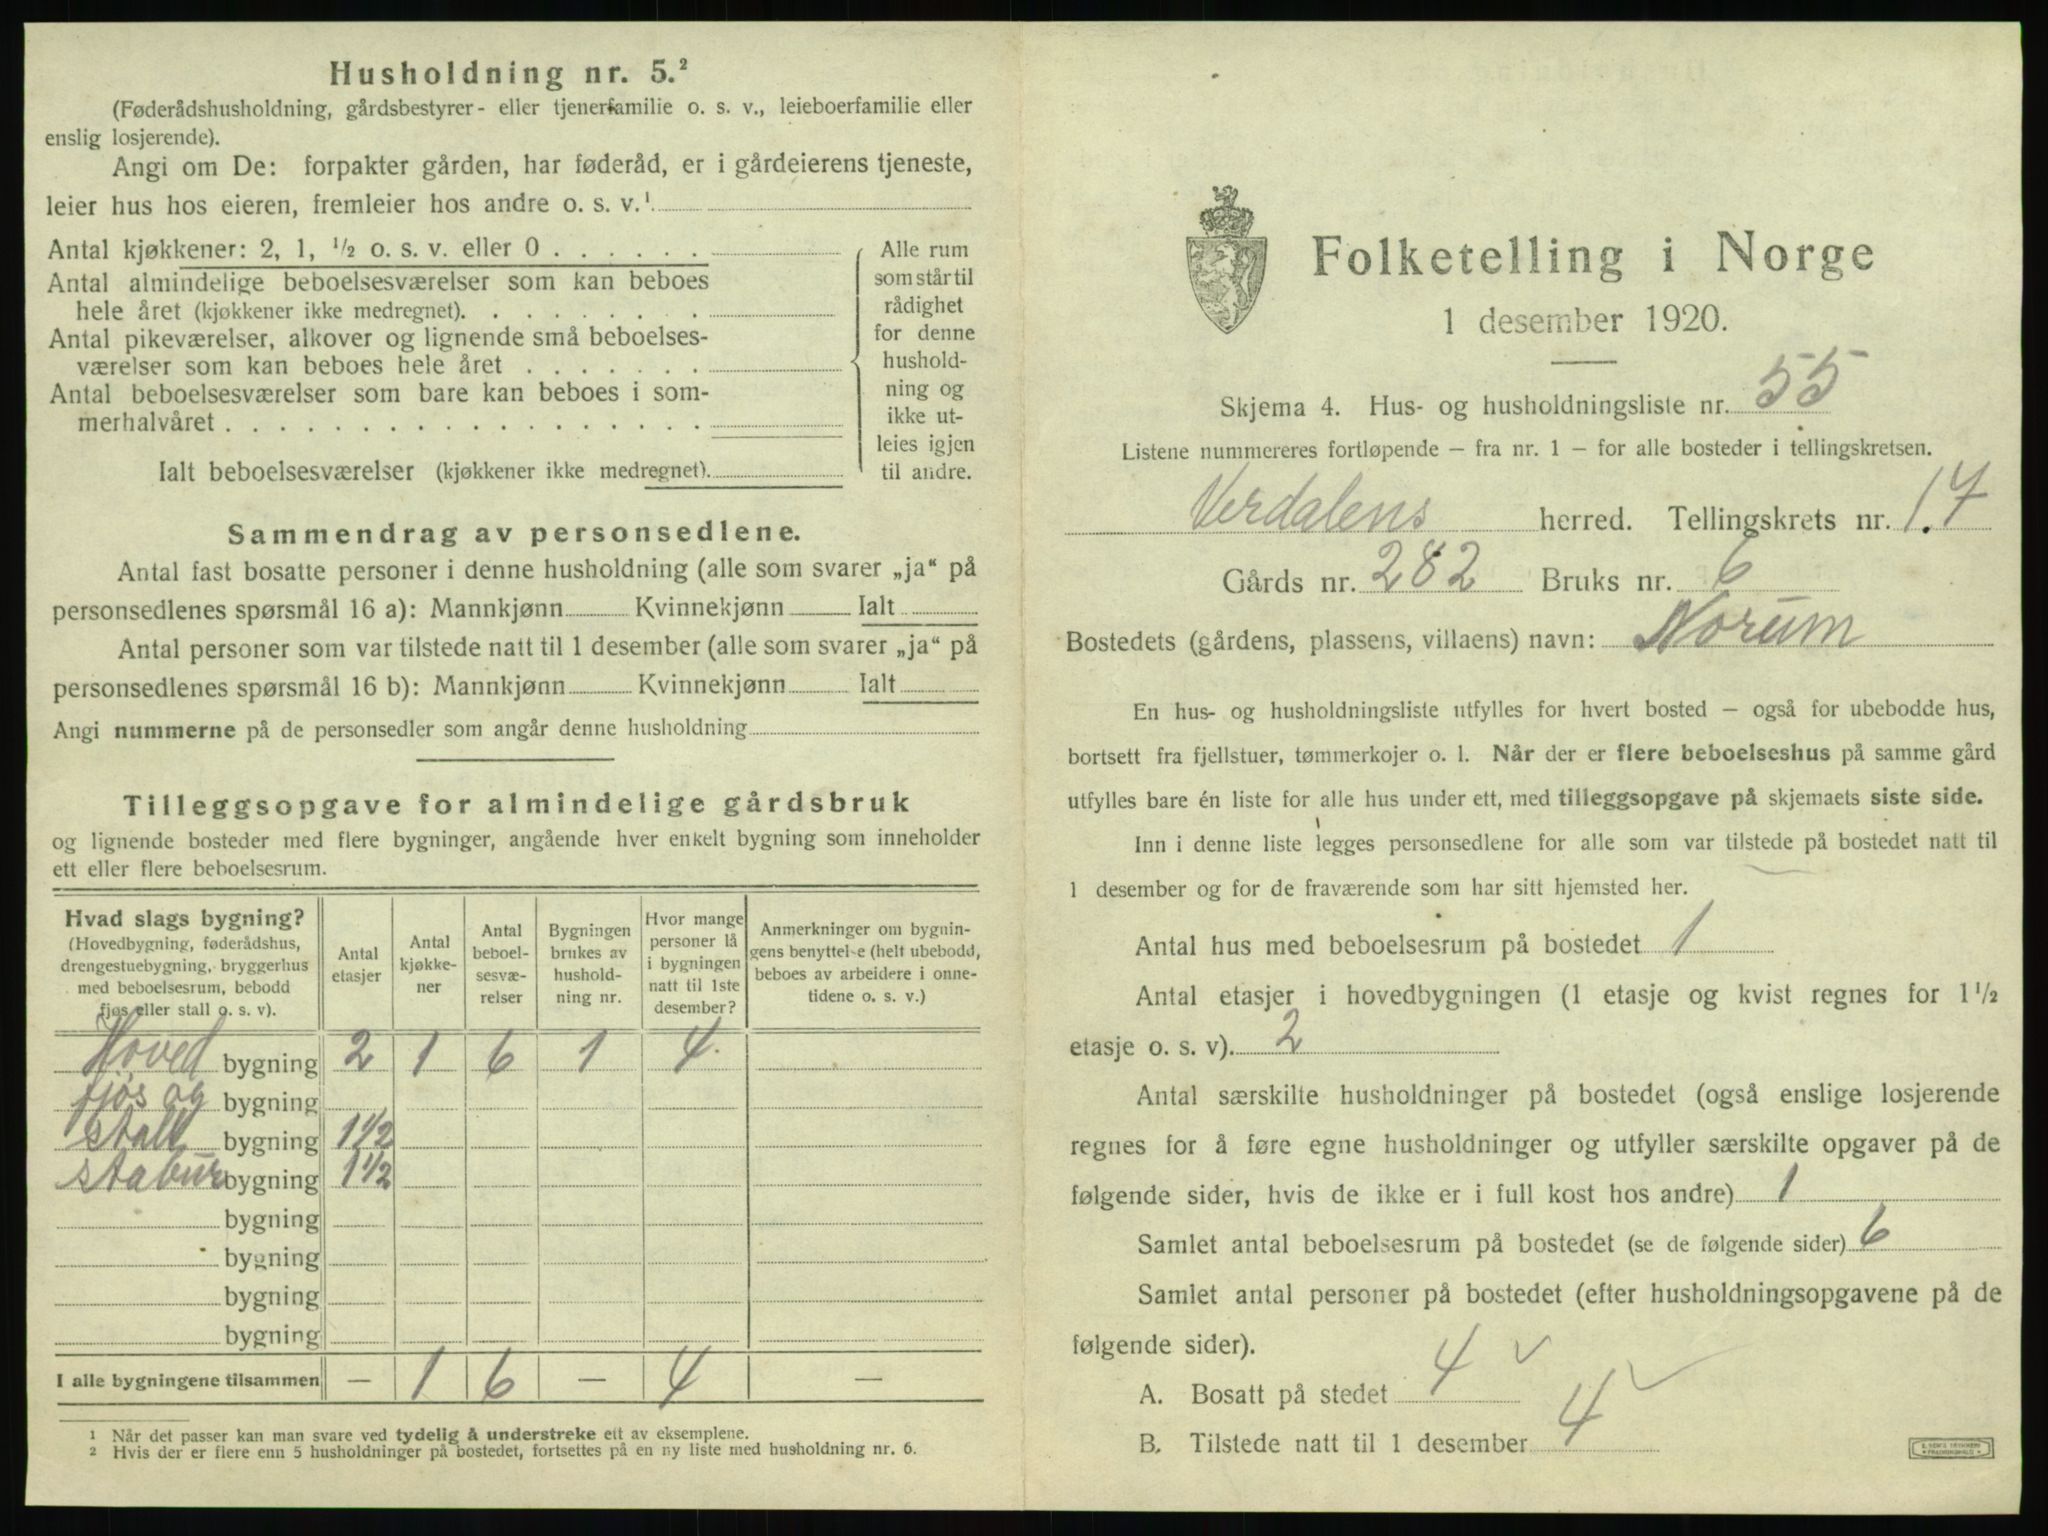 Husholdning nr. 5.²
(Føderådshusholdning, gårdsbestyrer- eller tjenerfamilie o. s. v., leieboerfamilie eller
enslig losjerende).
Angi om De: forpakter gården, har føderåd, er i gårdeierens tjeneste,
leier hus hos eieren, fremleier hos andre o. s. v.¹
Antal kjøkkener: 2, 1, ½ o. s. v. eller 0
Antal almindelige beboelsesværelser som kan beboes
hele året (kjøkkener ikke medregnet).
Antal pikeværelser, alkover og lignende små beboelses-
værelser som kan beboes hele året
Antal beboelsesværelser som bare kan beboes i som-
merhalvåret
Ialt beboelsesværelser (kjøkkener ikke medregnet).
Alle rum
som står til
rådighet
for denne
hushold-
ning og
ikke ut-
leies igjen
til andre.
Sammendrag av personsedlene.
Antal fast bosatte personer i denne husholdning (alle som svarer „ja“ på
personsedlenes spørsmål 16 a): Mannkjønn Kvinnekjønn Ialt
Antal personer som var tilstede natt til 1 desember (alle som svarer „ja“ på
personsedlenes spørsmål 16 b): Mannkjønn Kvinnekjønn Ialt
Angi nummerne på de personsedler som angår denne husholdning
Tilleggsopgave for almindelige gårdsbruk
og lignende bosteder med flere bygninger, angående hver enkelt bygning som inneholder
ett eller flere beboelsesrum.
Hvad slags bygning?
(Hovedbygning, føderådshus,
drengestuebygning, bryggerhus
med beboelsesrum, bebodd
fjøs eller stall o. s. v).
Antal
etasjer
Antal
kjøkke-
ner
Antal
beboel-
sesvæ-
relser
Bygningen
brukes av
hushold-
ning nr.
Hvor mange
personer lå
i bygningen
natt til 1ste
desember?
Anmerkninger om bygnin-
gens benyttelse (helt ubebodd,
beboes av arbeidere i onne-
tidene o. s. v.)
Hoved bygning 2 1 6 1 4
fjøs og bygning
stall bygning 1½
stabur bygning 1½
bygning
bygning
bygning
bygning
I alle bygningene tilsammen — 1 6 — 4 —
¹ Når det passer kan man svare ved tydelig å understreke ett av eksemplene.
² Hvis der er flere enn 5 husholdninger på bostedet, fortsettes på en ny liste med husholdning nr. 6.
Folketelling i Norge
1 desember 1920.
Skjema 4. Hus- og husholdningsliste nr. 55
Listene nummereres fortløpende — fra nr. 1 — for alle bosteder i tellingskretsen.
Verdalens herred. Tellingskrets nr. 17
Gårds nr. 282 Bruks nr. 6
Bostedets (gårdens, plassens, villaens) navn: Norum
En hus- og husholdningsliste utfylles for hvert bosted — også for ubebodde hus,
bortsett fra fjellstuer, tømmerkojer o. l. Når der er flere beboelseshus på samme gård
utfylles bare én liste for alle hus under ett, med tilleggsopgave på skjemaets siste side.
Inn i denne liste legges personsedlene for alle som var tilstede på bostedet natt til
1 desember og for de fraværende som har sitt hjemsted her.
Antal hus med beboelsesrum på bostedet 1
Antal etasjer i hovedbygningen (1 etasje og kvist regnes for 1½
etasje o. s. v). 2
Antal særskilte husholdninger på bostedet (også enslige losjerende
regnes for å føre egne husholdninger og utfyller særskilte opgaver på de
følgende sider, hvis de ikke er i full kost hos andre) 1
Samlet antal beboelsesrum på bostedet (se de følgende sider) 6
Samlet antal personer på bostedet (efter husholdningsopgavene på de
følgende sider).
A. Bosatt på stedet 4 ✓
B. Tilstede natt til 1 desember 4 ✓